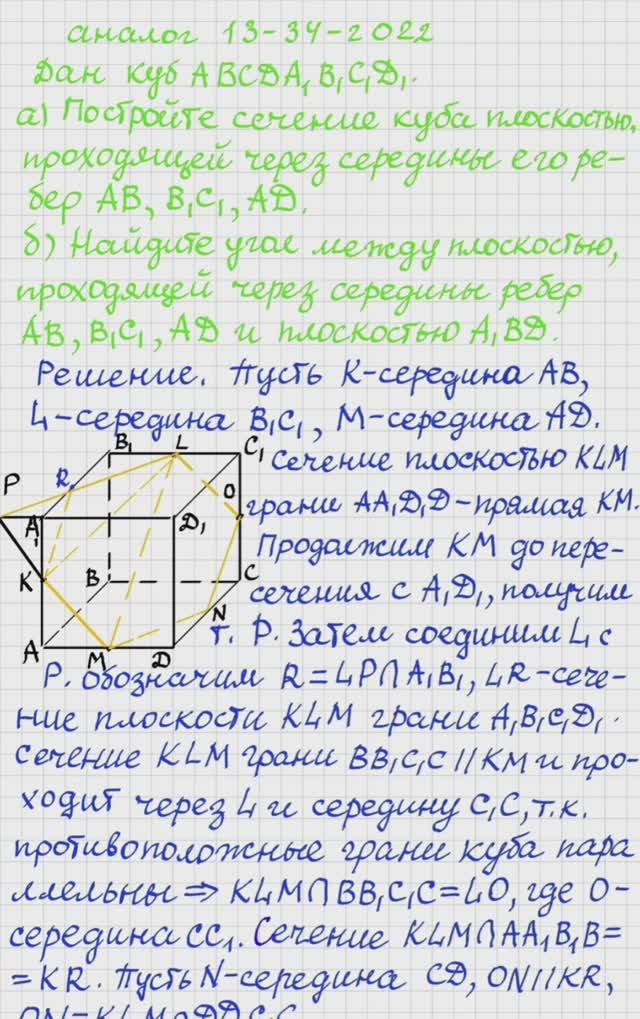 аналог 13-34-2022
Дан куб ABCDA₁B₁C₁D₁.
а) Постройте сечение куба плоскостью,
проходящей через середины его ре-
бер AB, B₁C₁, AD.
б) Найдите угол между плоскостью,
проходящей через середины ребер
AB, B₁C₁, AD и плоскостью A₁BD.
Решение. Пусть K-середина AB,
L-середина B₁C₁, M-середина AD.
B₁ L C₁
P R O
A₁ D₁
K B C
N
A M D
Сечение плоскостью KLM
грани AA₁D₁D - прямая KM.
Продолжим KM до пере-
сечения с A₁D₁, получим
т. P. Затем соединим L с
P. Обозначим R=LP∩A₁B₁, LR-сече-
ние плоскости KLM грани A₁B₁C₁D₁.
Сечение KLM грани BB₁C₁C // KM и про-
ходит через L и середину C₁C, т.к.
противоположные грани куба пара
ллельны ⇒ KLM∩BB₁C₁C=LO, где O-
середина CC₁. Сечение KLM∩AA₁B₁B=
=KR. Пусть N-середина CD, ON//KR,
ON=KLM∩DD₁C₁C